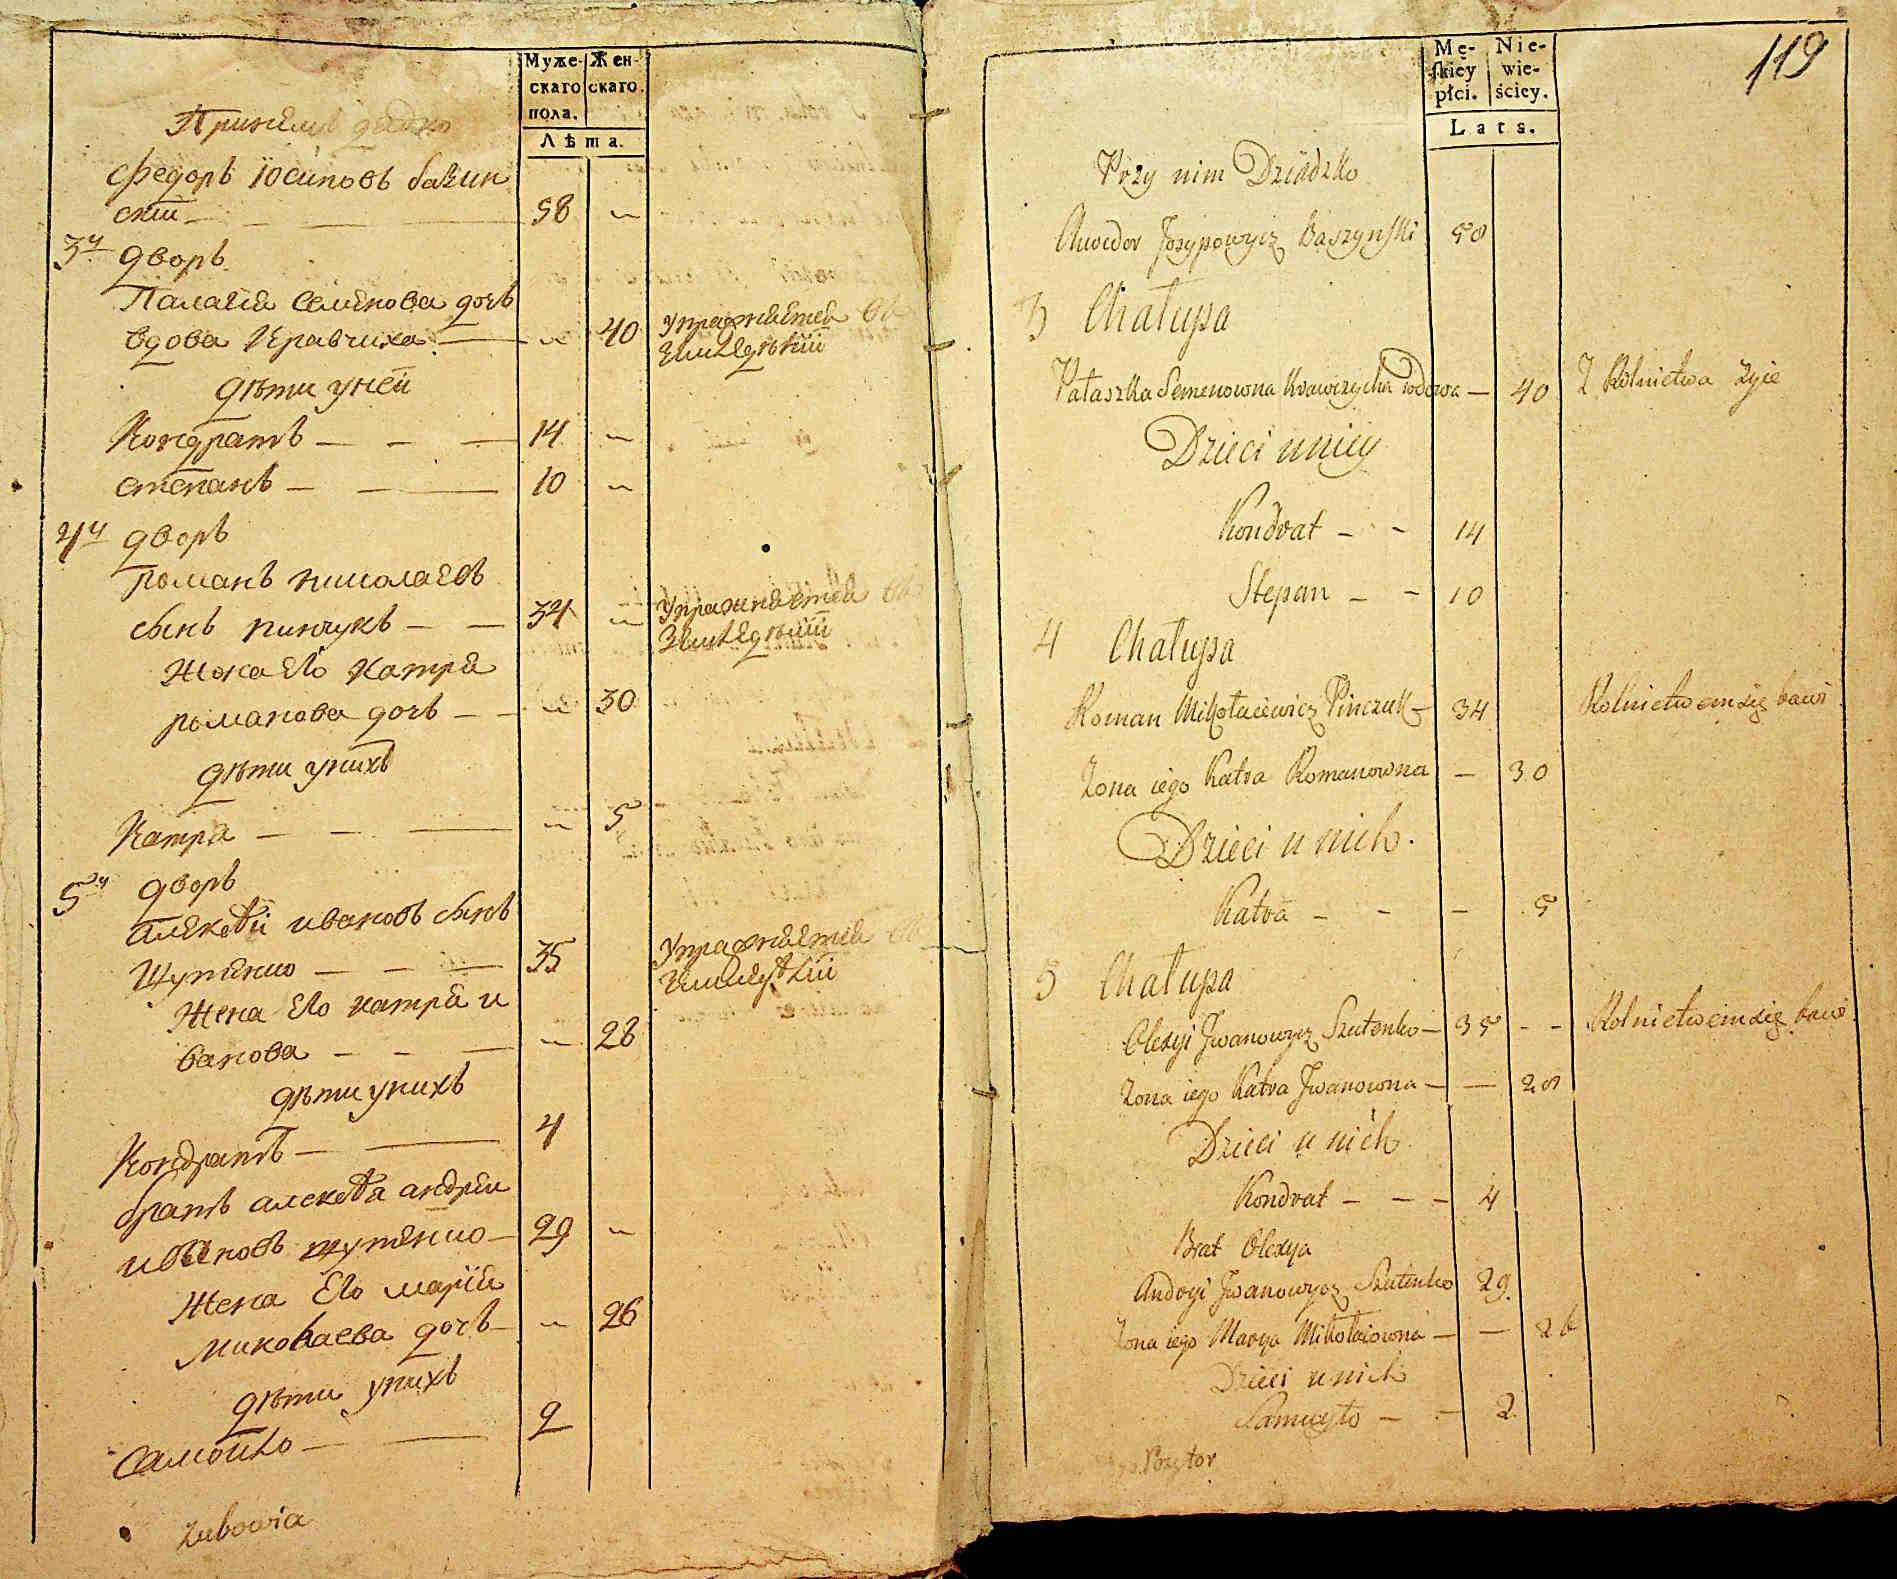 Муже-
скаго
пола.
Жен-
скаго.
Лѣта.
При немъ дядко
Федоръ Юсиповъ Башин
скій — 58 —
3й дворъ
Палагія Семенова дочь
вдова Кравчиха — 40 Упражняется въ
земледѣліи
дѣти у ней
Кондратъ — 14 —
Степанъ — 10 —
4й дворъ
Романъ Николаевъ
сынъ Пинчукъ — 34 — Упражняется въ
земледѣліи
Жена его Катря
Романова дочь — 30
дѣти у нихъ
Катря — 5
5й дворъ
Алексѣй Ивановъ сынъ
Шутенко — 35 Упражняется въ
земледѣліи
Жена его Катря И
ванова — 28
дѣти у нихъ
Кондратъ — 4
братъ Алексѣя Андрей
Ивановъ Шутенко — 29 —
Жена его Марія
Миколаева дочь — 26
дѣти у нихъ
Самойло — 2
119
Mę-
skiey
płci.
Nie-
wie-
ściey.
Lats.
Przy nim Dziadzko
Josypowycz Baszynski 58
3 Chałupa
Pałaszka Semenowna Krawczycha Wdowa — 40 Z Rolnictwa żyie
Dzieci u niey
Kondrat — 14
Stepan — 10
4 Chałupa
Roman Mikołaiewicz Pinczuk — 34 Rolnictwem się bawi
Zona iego Katra Romanowna — 30
Dzieci u nich.
Katra — 5
5 Chałupa
Olexyi Jwanowycz Szutenko — 35 — Rolnictwem się bawi
Zona iego Katra Jwanowna — 28
Dzieci u nich
Kondrat — 4
Brat Olexya
Andryi Jwanowycz Szutenko 29
Zona iego Marya Mikołaiowna — 26
Dzieci u nich
Samuyło — 2